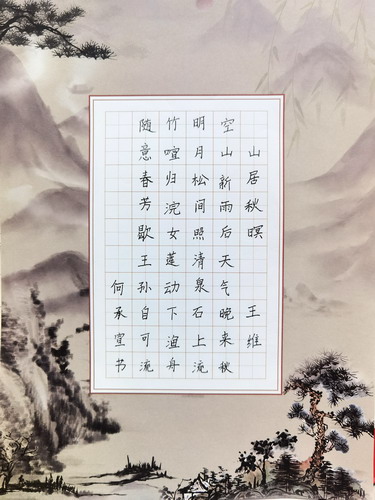 山居秋暝 王维
空山新雨后天气晚来秋
明月松间照清泉石上流
竹喧归浣女莲动下渔舟
随意春芳歇王孙自可流
何书